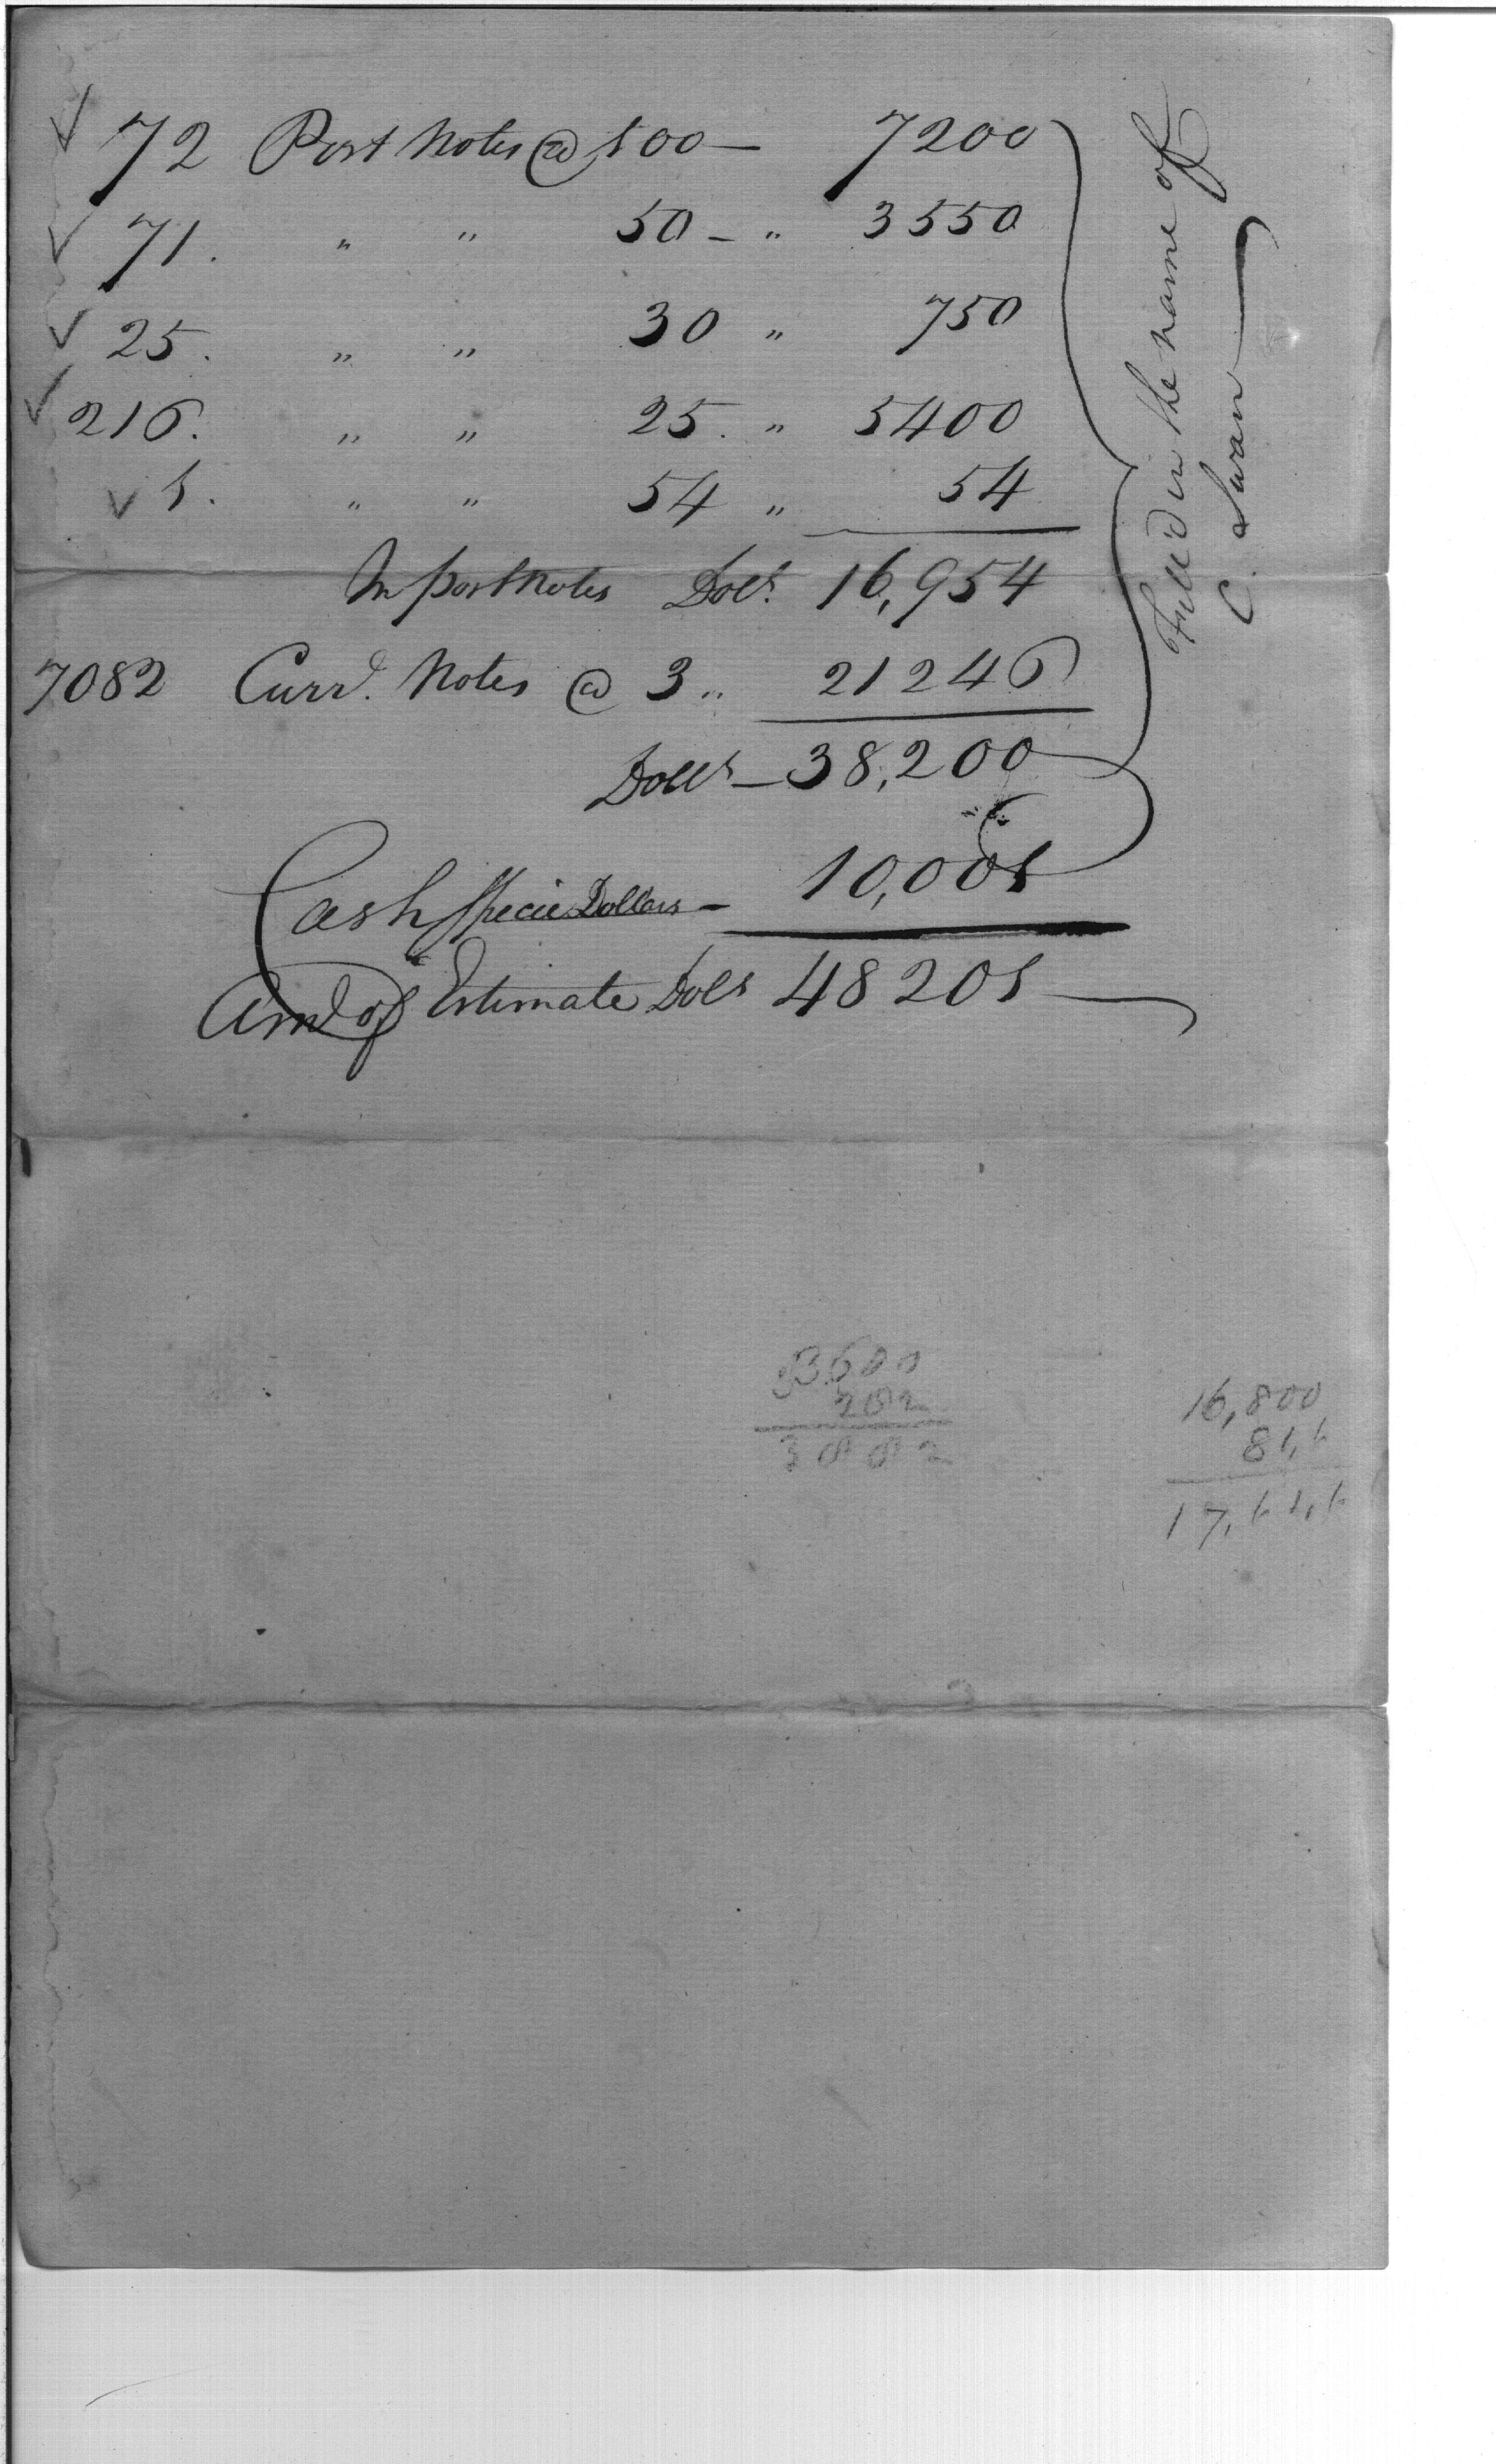 ✓ 72 Post Notes @ 100 — 7200
✓ 71. " " 50 — " 3550
✓ 25. " " 30 " 750
✓ 216. " " 25. " 5400
✓ 1. " " 54 " 54
In post Notes Dolls. 16,954
7082 Currt. Notes @ 3 " 21246
Dolls — 38,200
Cash Specie Dollars — 10,001
Amt of Estimate Dolls 48201
Fill'd in the name of
C. Swan
3600
282
3882
16,800
17,